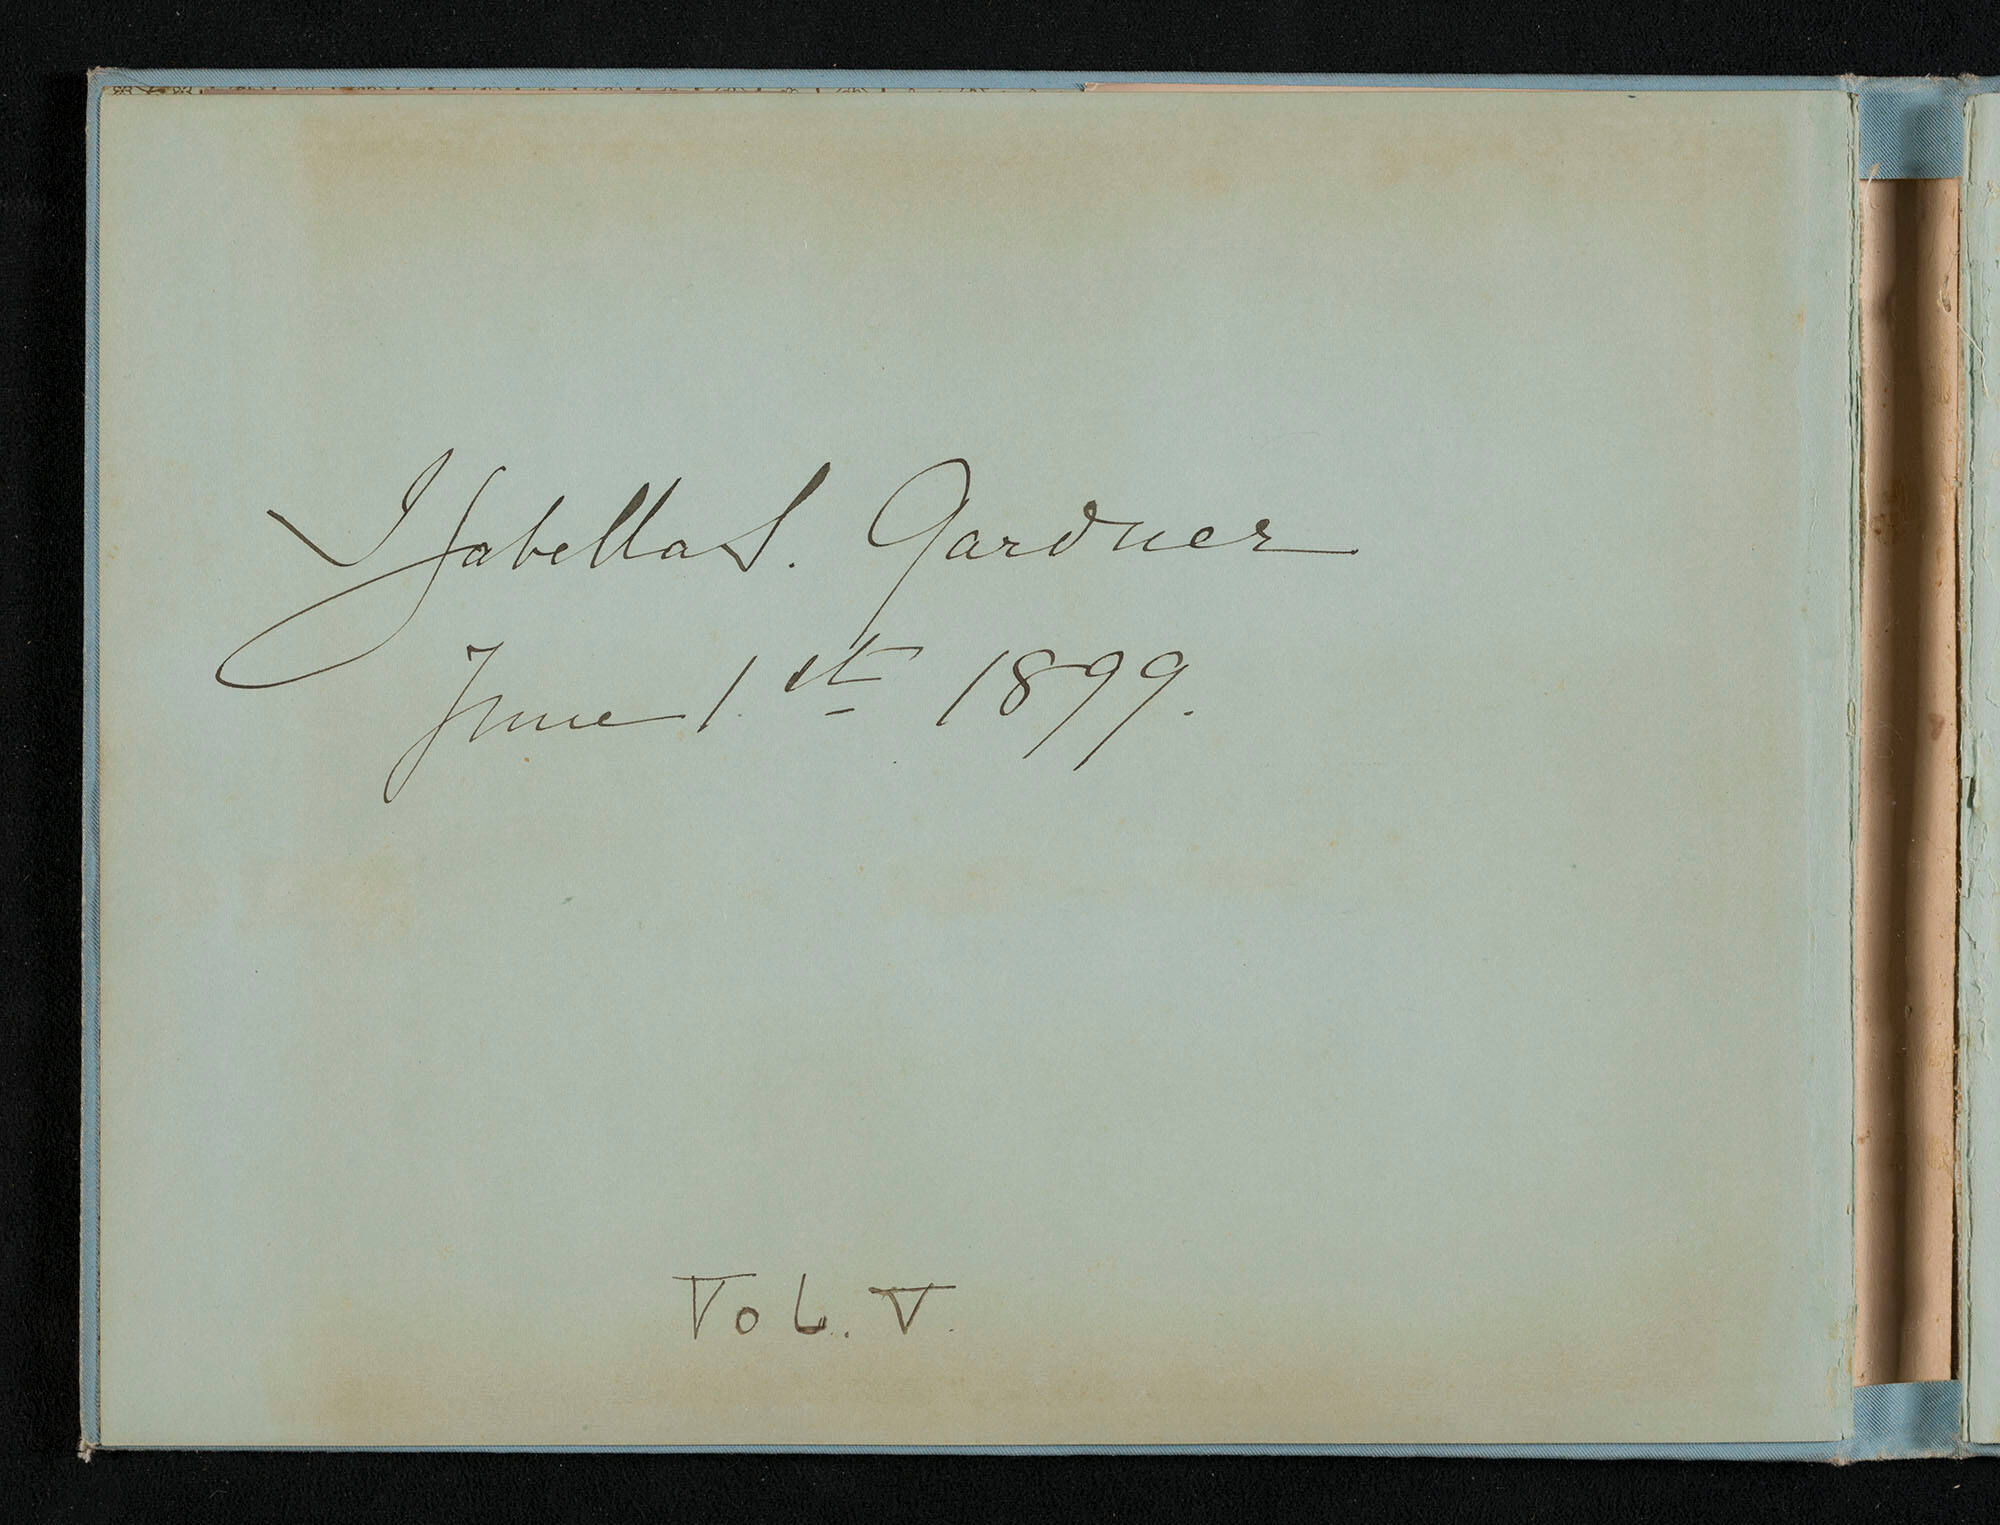 Isabella S. Gardner
June 1.st 1899.
Vol. V.